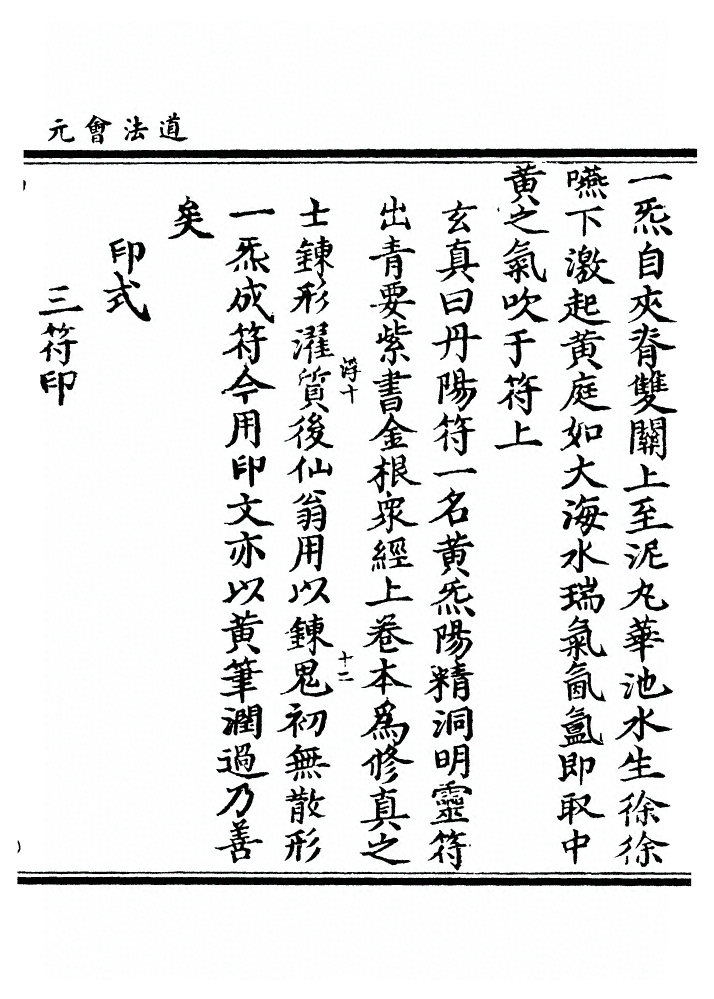 道法會元
一炁自夾脊雙關上至泥丸華池水生徐徐
嚥下激起黄庭如大海水瑞氣氤氳即取中
黄之氣吹于符上
玄真曰丹陽符一名黄炁陽精洞明靈符
出青要紫書金根衆經上卷本爲修真之
浮十
十二
士鍊形濯質後仙翁用以鍊鬼初無散形
一炁成符今用印文亦以黄筆潤過乃善
矣
印式
三符印